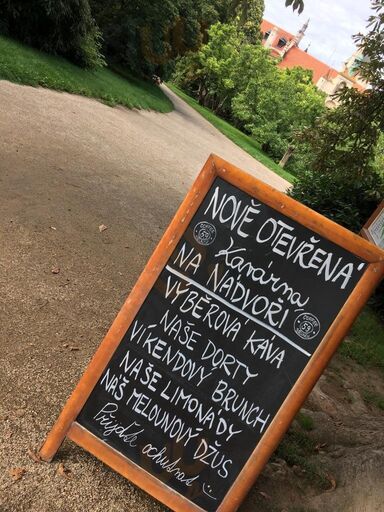 NOVĚ OTEVŘENÁ
Kavárna
NA NÁDVOŘÍ
VÝBĚROVÁ KÁVA
NAŠE DORTY
VÍKENDOVÝ BRUNCH
NAŠE LIMONÁDY
NÁŠ MELOUNOVÝ DŽUS
Přijďte ochutnat